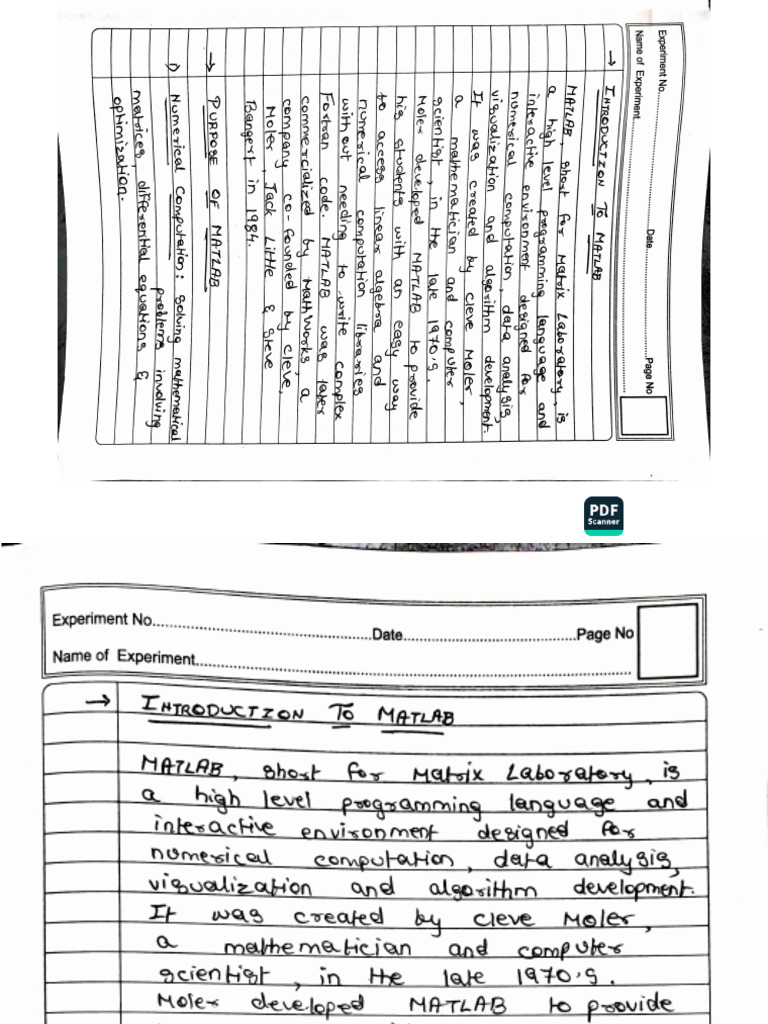 Experiment No. Date Page No
Name of Experiment
→ INTRODUCTION TO MATLAB
MATLAB, short for Matrix Laboratory, is
a high level programming language and
interactive environment designed for
numerical computation, data analysis,
visualization and algorithm development.
It was created by Cleve Moler,
a mathematician and computer
scientist, in the late 1970's.
Moler developed MATLAB to provide
his students with an easy way
to access linear algebra and
numerical computation libraries
without needing to write complex
Fortran code. MATLAB was later
commercialized by MathWorks, a
company co-founded by Cleve,
Moler, Jack Little & Steve
Bangert in 1984.
→ PURPOSE OF MATLAB
1) Numerical Computation: Solving mathematical
problems involving
matrices, differential equations &
optimization.
PDF
Scanner
Experiment No. Date Page No
Name of Experiment
→ INTRODUCTION TO MATLAB
MATLAB, short for Matrix Laboratory, is
a high level programming language and
interactive environment designed for
numerical computation, data analysis,
visualization and algorithm development.
It was created by Cleve Moler,
a mathematician and computer
scientist, in the late 1970's.
Moler developed MATLAB to provide